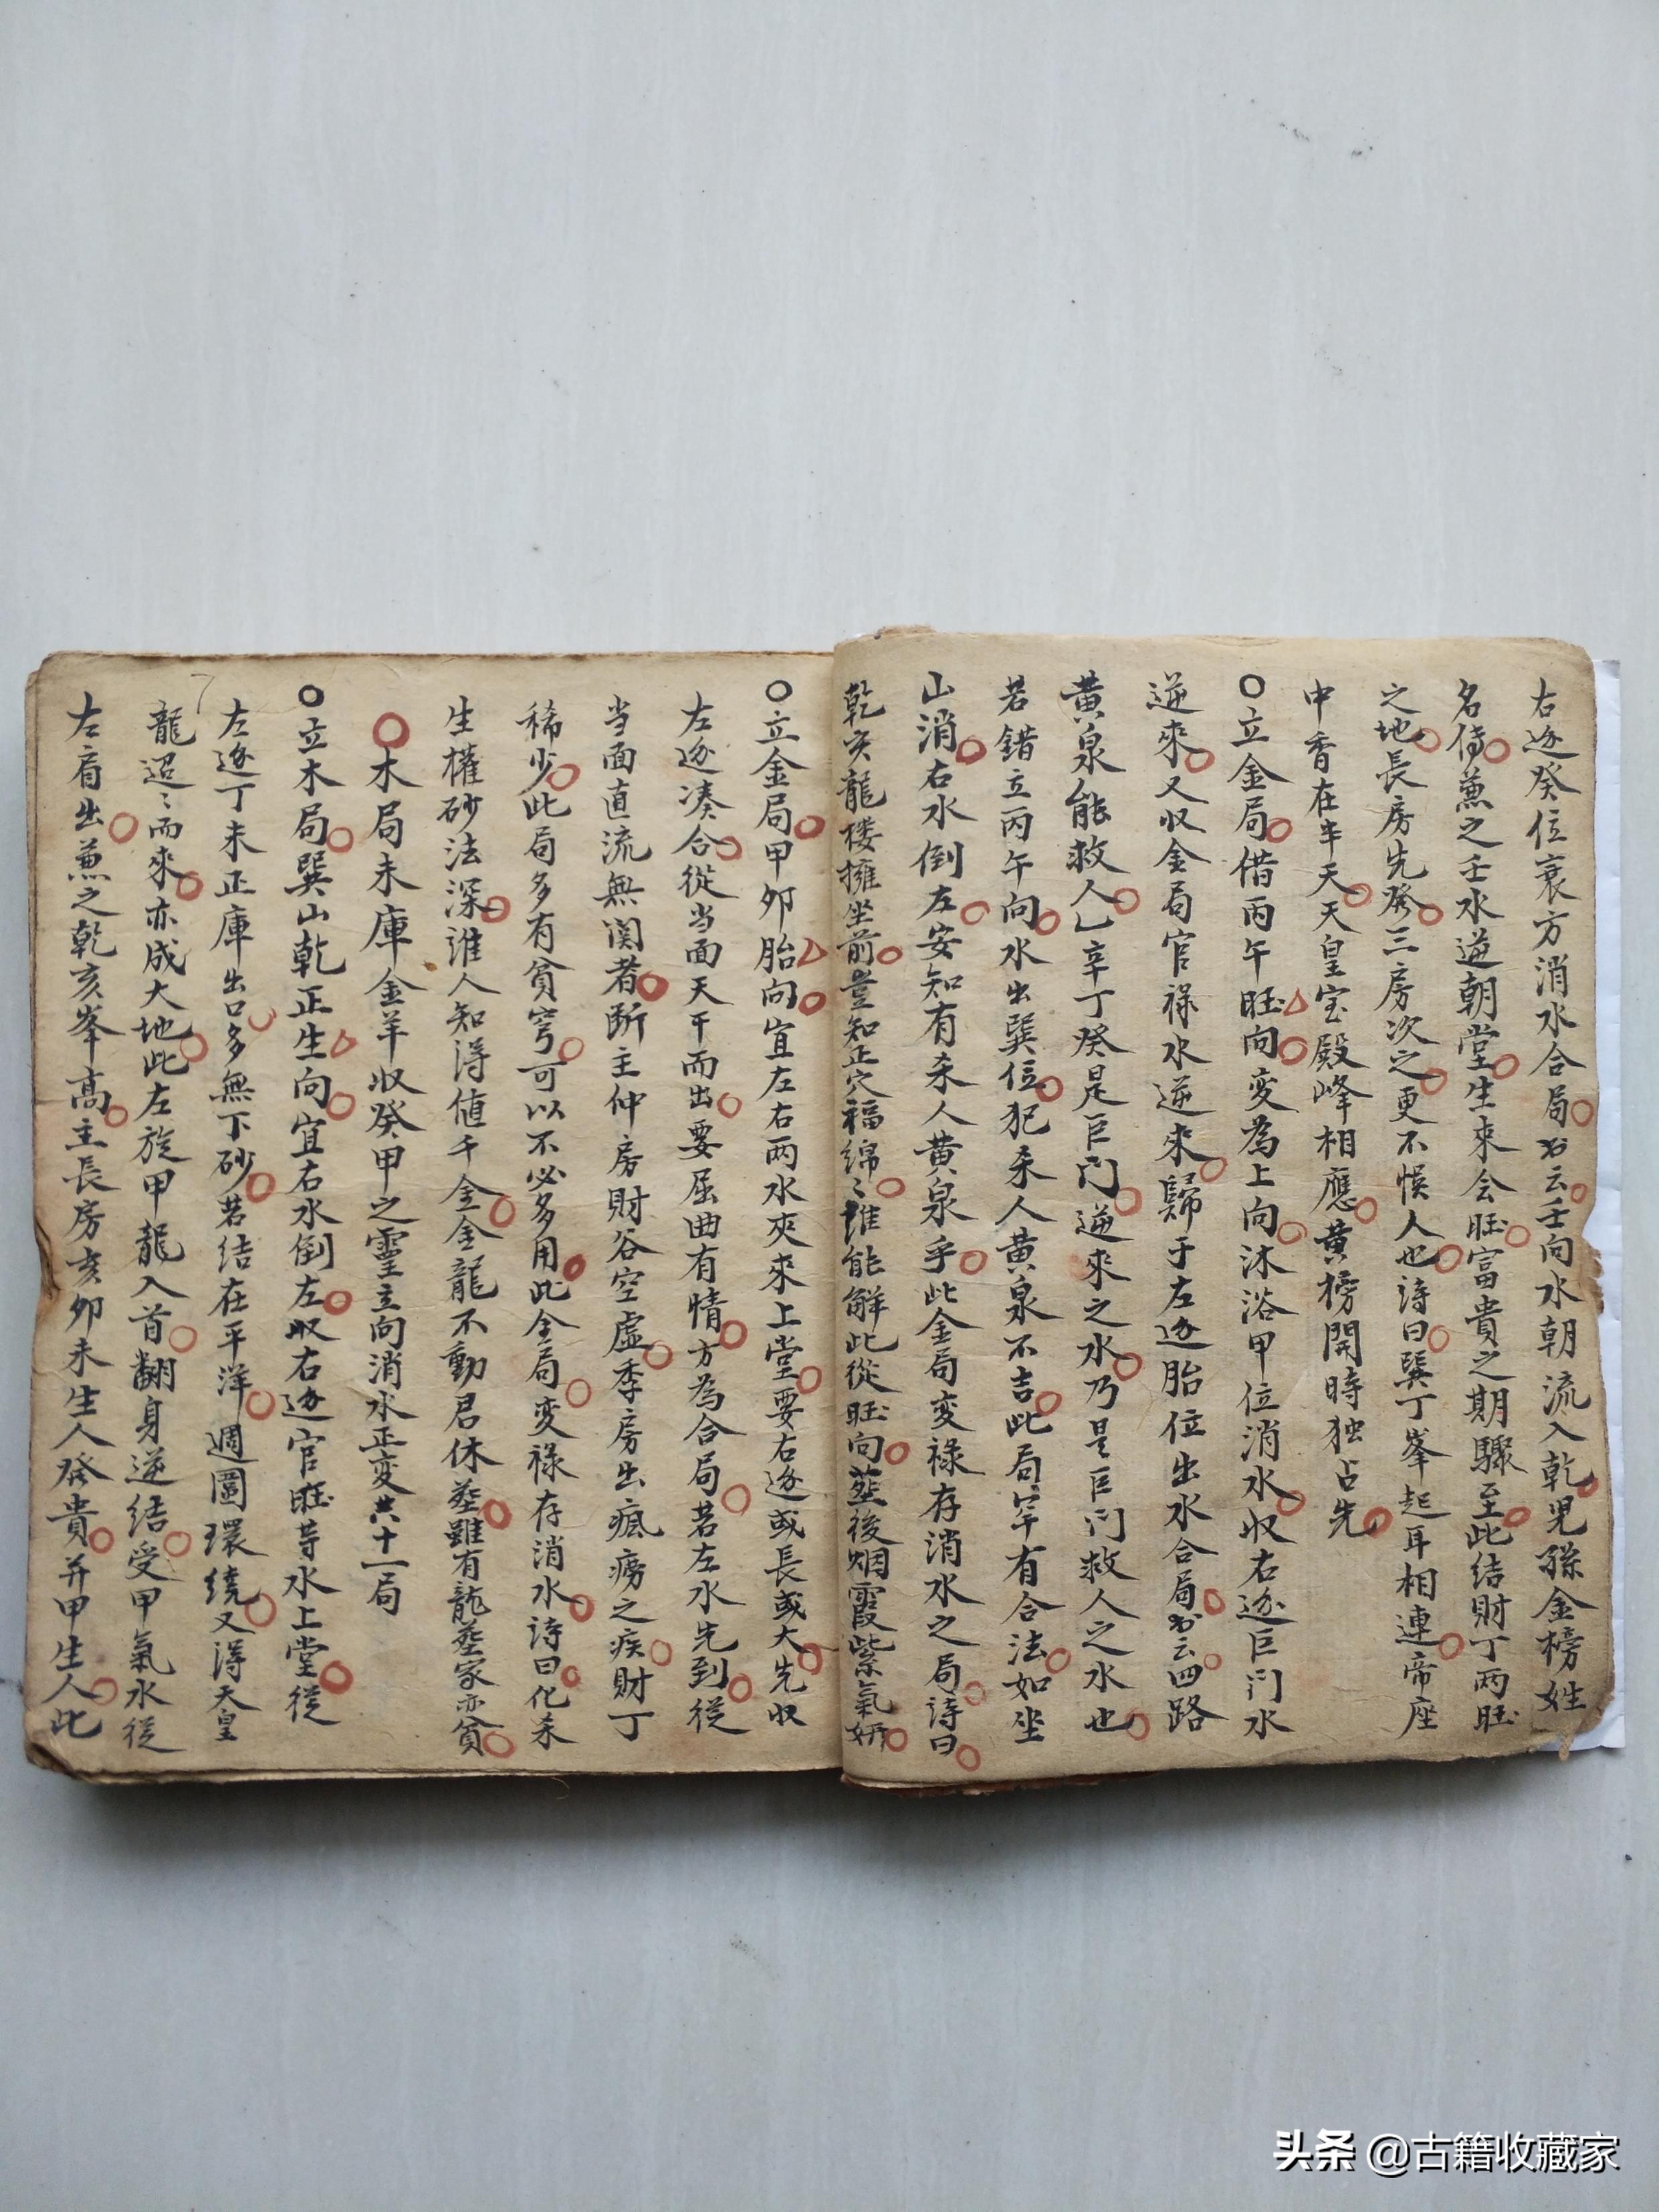 右逆癸位衰方消水合局书云壬向水朝流入乾兒孫金榜姓
名傳兼之壬水逆朝堂生來会旺富貴之期驟至此結財丁两旺
之地長房先發三房次之更不悮人也詩曰巽丁峯起耳相連帝座
中香在半天天皇宝殿峰相應黄榜開時独占先
○立金局借丙午旺向变為上向沐浴甲位消水收右逆巨门水
逆來又収金局官祿水逆來歸于左逆胎位出水合局书云四路
黄泉能救人乙辛丁癸是巨门逆來之水乃是巨门救人之水也
若錯立丙午向水出巽位犯杀人黄泉不吉此局罕有合法如坐
山消右水倒左安知有杀人黄泉乎此金局变祿存消水之局詩曰
乾亥龍楼擁坐前豈知正穴福綿〻誰能解此從旺向塟後烟霞紫氣妍
○立金局甲卯胎向宜左右两水夾來上堂要右逆或長或大先収
左逆凑合從当面天干而出要屈曲有情方為合局若左水先到從
当面直流無関者断主仲房財谷空虚季房出瘋癆之疾財丁
稀少此局多有貧窮可以不必多用此金局变祿存消水詩曰化杀
生權砂法深誰人知得值千金金龍不動君休塟雖有龍塟家亦貧
○木局未庫金羊収癸甲之靈主向消水正变共十一局
○立木局巽山乾正生向宜右水倒左収右逆官旺等水上堂從
左逆丁未正庫出口多無下砂若结在平洋週圍環繞又得天皇
龍迢〻而來亦成大地此左旋甲龍入首翻身逆结受甲氣水從
左肩出兼之乾亥峯高主長房亥卯未生人發貴并甲生人此
头条 @古籍收藏家